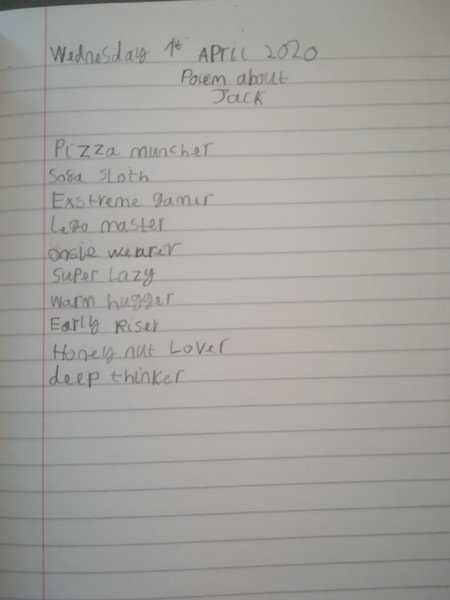 Wednesday 1st APRIL 2020
Poem about
Jack
Pizza muncher
Sofa Sloth
Exstreme gamer
Lego master
onsie wearer
Super Lazy
Warm hugger
Early Riser
Honey nut Lover
deep thinker